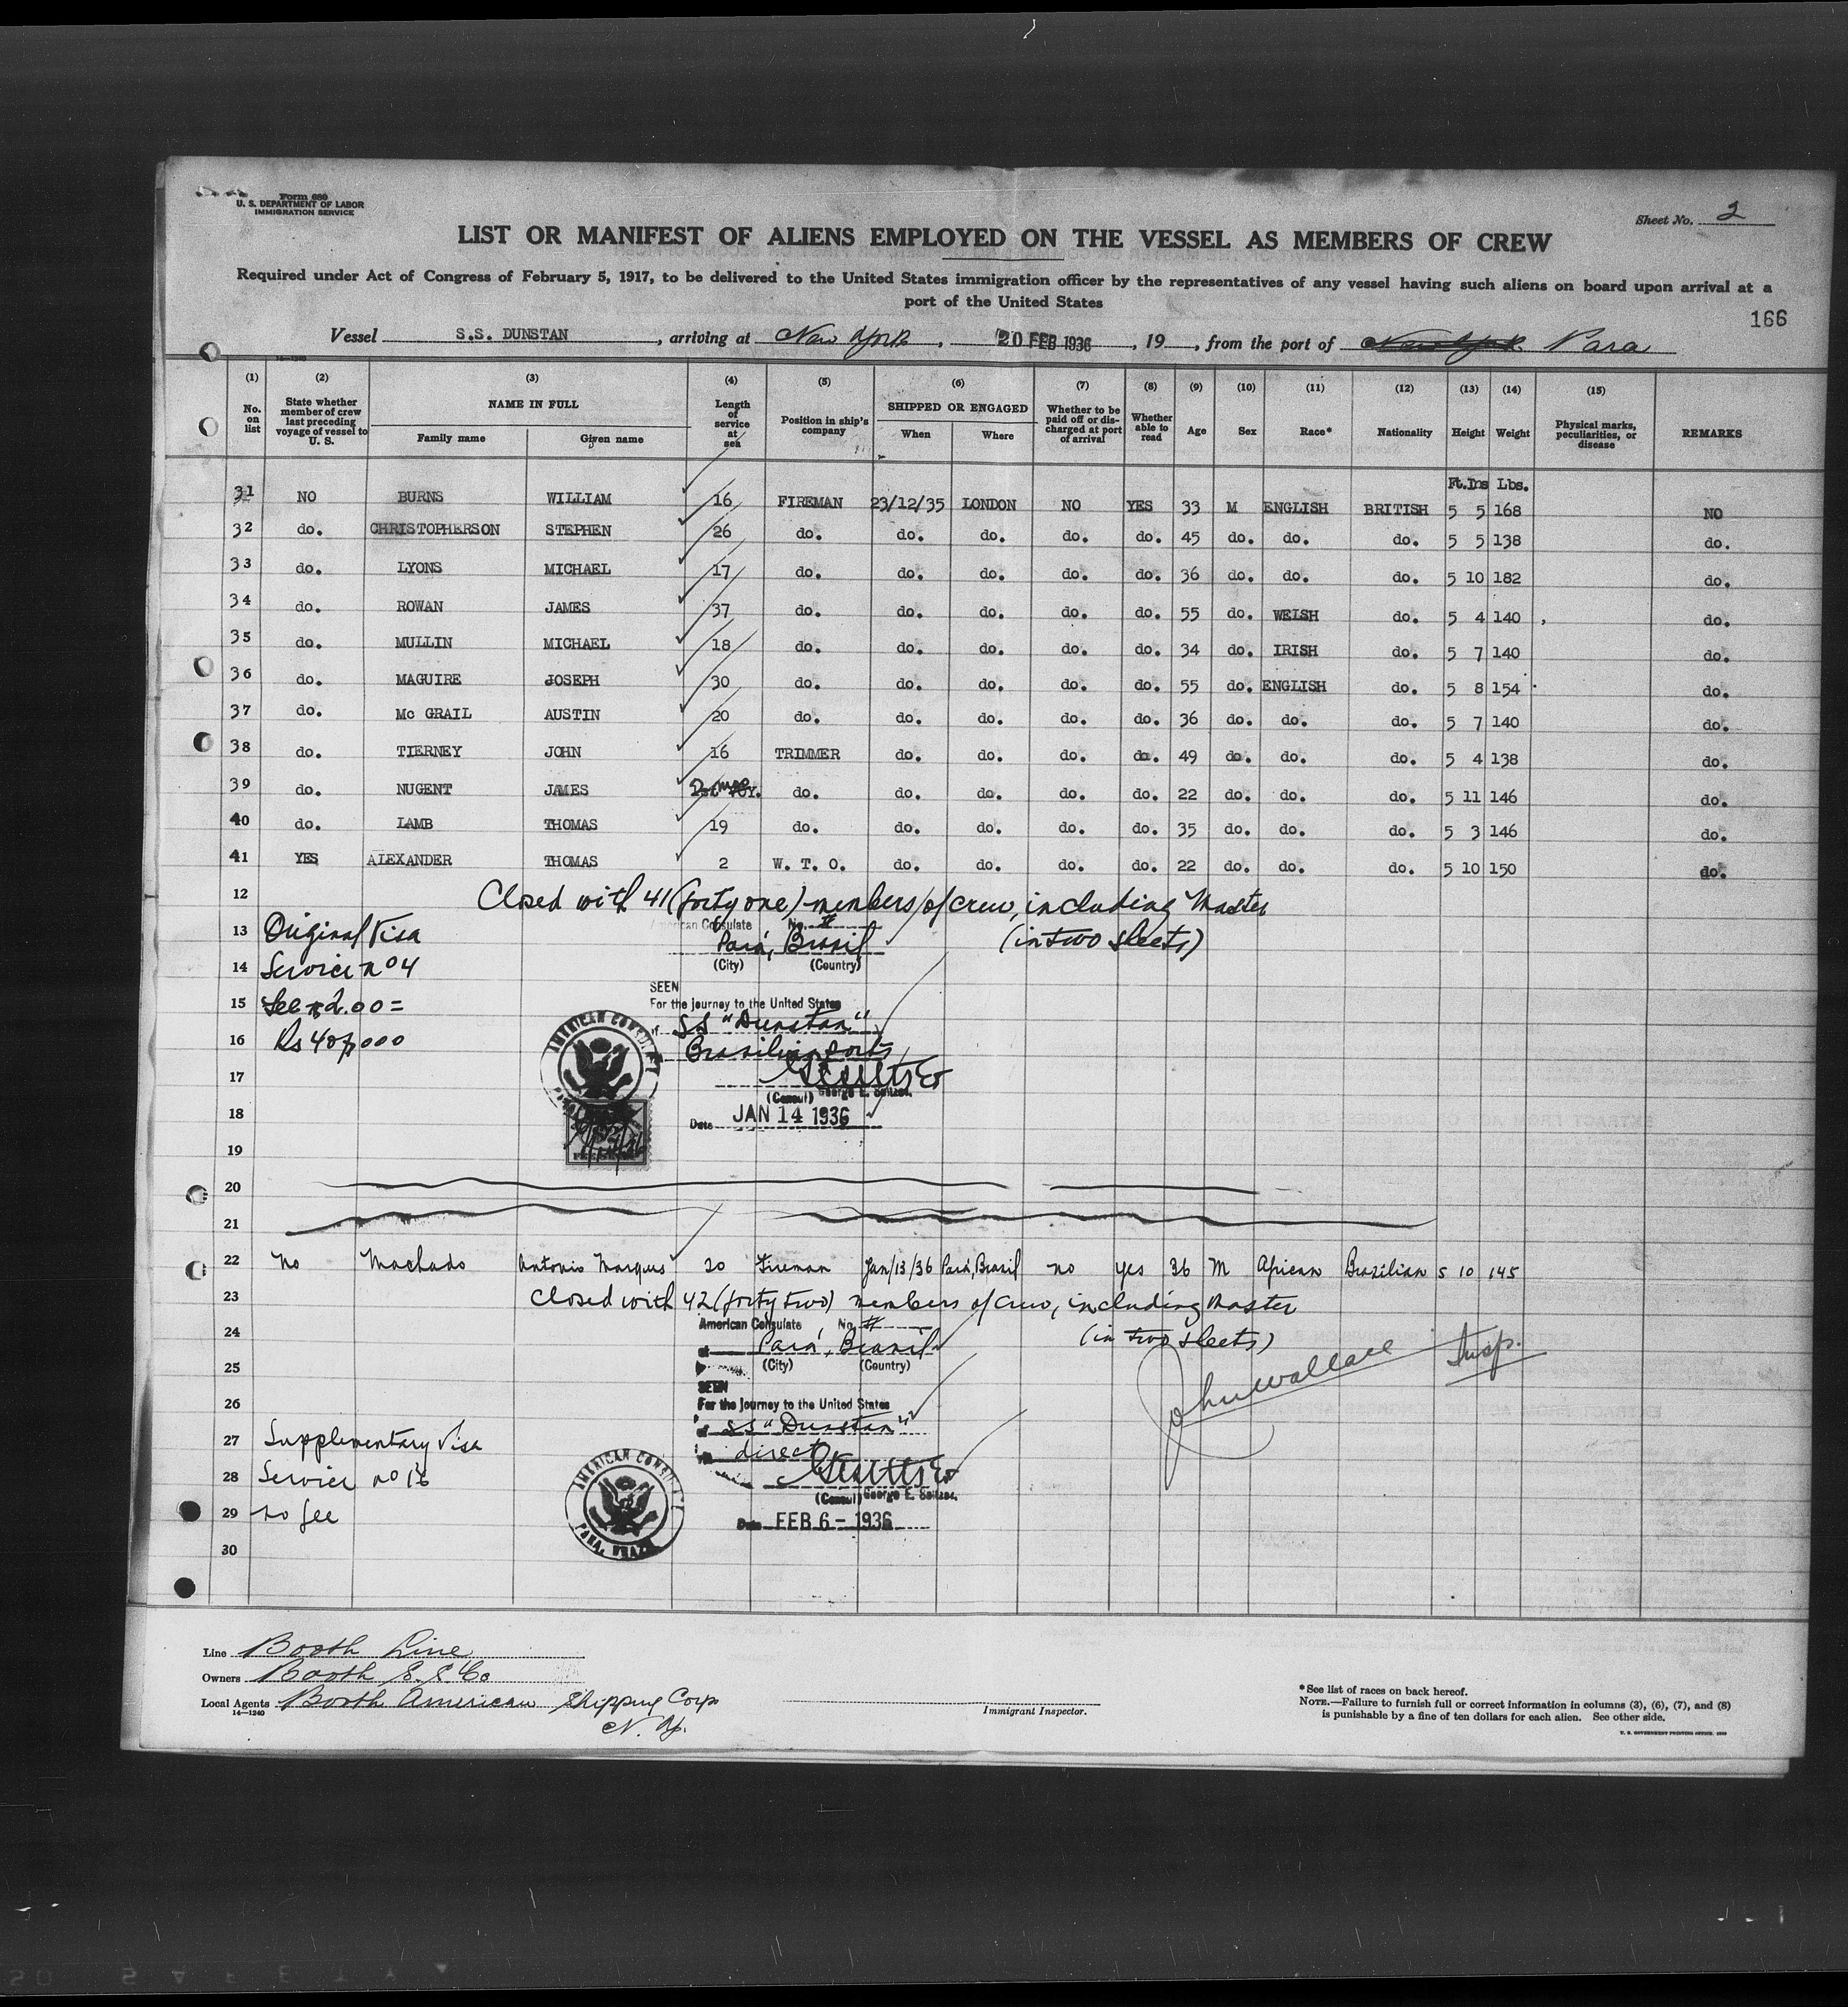 Form 680
U. S. DEPARTMENT OF LABOR
IMMIGRATION SERVICE
Sheet No. 2
LIST OR MANIFEST OF ALIENS EMPLOYED ON THE VESSEL AS MEMBERS OF CREW
Required under Act of Congress of February 5, 1917, to be delivered to the United States immigration officer by the representatives of any vessel having such aliens on board upon arrival at a
port of the United States
166
Vessel S.S. DUNSTAN, arriving at New York, 20 FEB 1936, 19, from the port of Para
(1) (2) (3) (4) (5) (6) (7) (8) (9) (10) (11) (12) (13) (14) (15)
No. on list
State whether member of crew last preceding voyage of vessel to U. S.
NAME IN FULL
Family name Given name
Length of service at sea
Position in ship's company
SHIPPED OR ENGAGED
When Where
Whether to be paid off or discharged at port of arrival
Whether able to read
Age Sex Race* Nationality Height Weight
Physical marks, peculiarities, or disease
REMARKS
Ft. Ins Lbs.
31 NO BURNS WILLIAM 16 FIREMAN 23/12/35 LONDON NO YES 33 M ENGLISH BRITISH 5 5 168 NO
32 do. CHRISTOPHERSON STEPHEN 26 do. do. do. do. do. 45 do. do. do. 5 5 138 do.
33 do. LYONS MICHAEL 17 do. do. do. do. do. 36 do. do. do. 5 10 182 do.
34 do. ROWAN JAMES 37 do. do. do. do. do. 55 do. WELSH do. 5 4 140 do.
35 do. MULLIN MICHAEL 18 do. do. do. do. do. 34 do. IRISH do. 5 7 140 do.
36 do. MAGUIRE JOSEPH 30 do. do. do. do. do. 55 do. ENGLISH do. 5 8 154 do.
37 do. Mc GRAIL AUSTIN 20 do. do. do. do. do. 36 do. do. do. 5 7 140 do.
38 do. TIERNEY JOHN 16 TRIMMER do. do. do. do. 49 do. do. do. 5 4 138 do.
39 do. NUGENT JAMES do. do. do. do. do. 22 do. do. do. 5 11 146 do.
40 do. LAMB THOMAS 19 do. do. do. do. do. 35 do. do. do. 5 3 146 do.
41 YES ALEXANDER THOMAS 2 W. T. O. do. do. do. do. 22 do. do. do. 5 10 150 do.
12 Closed with 41 (forty one) members of crew, including Master
(in two sheets)
13 Original Visa
14 Service no 4
15 Fee $2.00 =
16
American Consulate No. #
Pará, Brasil
(City) (Country)
SEEN
For the journey to the United States
SS "Dunstan"
Brazilian ports
(Consul) George E. Seltzer.
Date JAN 14 1936
AMERICAN CONSULATE
17
18
19
20
21
22 No Machado Antonio Marques 20 Fireman Jan/13/36 Pará, Brasil no yes 36 M African Brazilian 5 10 145
23 Closed with 42 (forty two) members of crew, including Master
(in two sheets)
24
25
26
American Consulate No. #
Pará, Brasil
(City) (Country)
SEEN
For the journey to the United States
SS "Dunstan"
direct
(Consul) George E. Seltzer.
Date FEB 6 - 1936
John Wallace Insp.
27 Supplementary Visa
28 Service no 16
29 no fee
30
AMERICAN CONSULATE
PARA, BRAZIL
Line Booth Line
Owners Booth S. S. Co
Local Agents Booth American Shipping Corp
N. Y.
14—1240
Immigrant Inspector.
*See list of races on back hereof.
NOTE.—Failure to furnish full or correct information in columns (3), (6), (7), and (8)
is punishable by a fine of ten dollars for each alien. See other side.